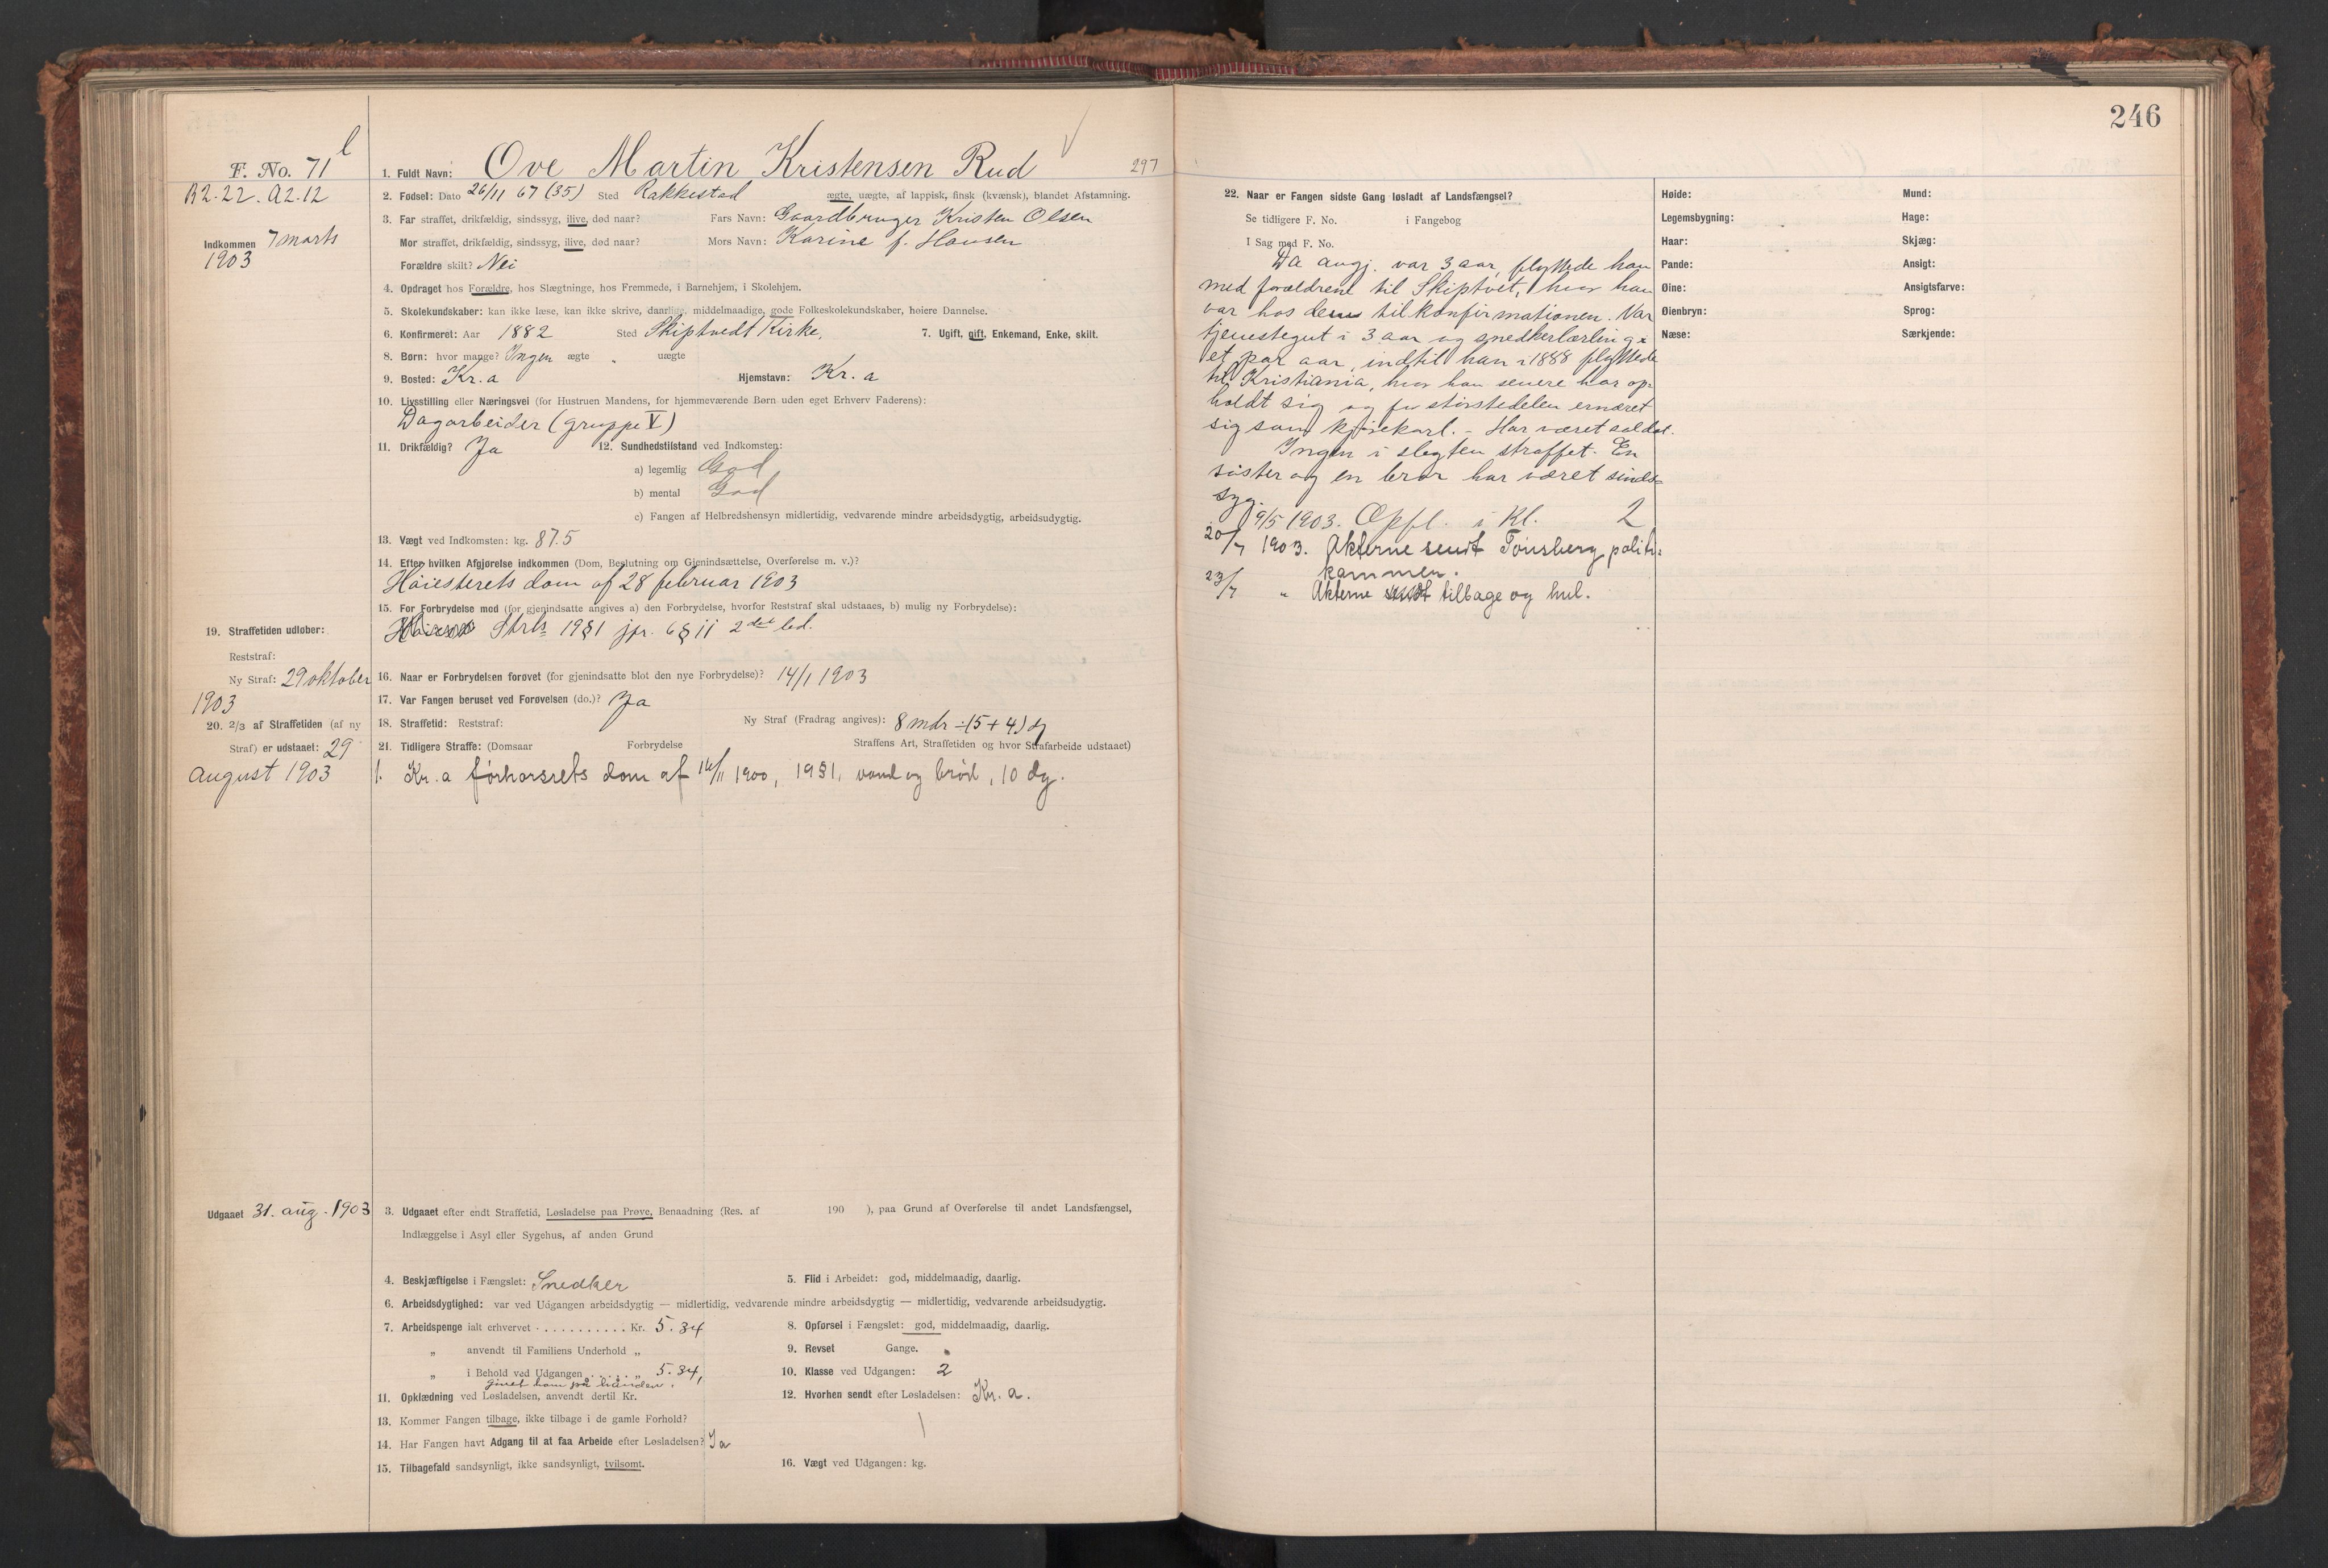 246
F. No. 71 l
B2.22. A2.12
Indkommen 7 marts
1903
19. Straffetiden udløber:
Reststraf:
Ny Straf: 29 oktober
1903
20. 2/3 af Straffetiden (af ny
Straf) er udstaaet: 29
august 1903
Udgaaet 31. aug. 1903
1. Fuldt Navn: Ove Martin Kristensen Rud 297
2. Fødsel: Dato 26/11 67 (35) Sted Rakkestad ægte, uægte, af lappisk, finsk (kvænsk), blandet Afstamning.
3. Far straffet, drikfældig, sindssyg, ilive, død naar? Fars Navn: Gaardbruger Kristen Olsen
Mor straffet, drikfældig, sindssyg, ilive, død naar? Mors Navn: Karine f. Hansen
Forældre skilt? Nei
4. Opdraget hos Forældre, hos Slægtninge, hos Fremmede, i Barnehjem, i Skolehjem.
5. Skolekundskaber: kan ikke læse, kan ikke skrive, daarlige, middelmaadige, gode Folkeskolekundskaber, høiere Dannelse.
6. Konfirmeret: Aar 1882 Sted Skiptvedt Kirke. 7. Ugift, gift, Enkemand, Enke, skilt.
8. Børn: hvor mange? Ingen ægte „ uægte
9. Bosted: Kr.a Hjemstavn: Kr.a
10. Livsstilling eller Næringsvei (for Hustruen Mandens, for hjemmeværende Børn uden eget Erhverv Faderens):
Dagarbeider (gruppe V)
11. Drikfældig? Ja 12. Sundhedstilstand ved Indkomsten:
a) legemlig God
b) mental God
c) Fangen af Helbredshensyn midlertidig, vedvarende mindre arbeidsdygtig, arbeidsudygtig.
13. Vægt ved Indkomsten: kg. 87.5
14. Efter hvilken Afgjørelse indkommen (Dom, Beslutning om Gjenindsættelse, Overførelse m. v.)?
Høiesterets dom af 28 februar 1903
15. For Forbrydelse mod (for gjenindsatte angives a) den Forbrydelse, hvorfor Reststraf skal udstaaes, b) mulig ny Forbrydelse):
Strls 19§1 jfr. 6§11 2det led.
16. Naar er Forbrydelsen forøvet (for gjenindsatte blot den nye Forbrydelse)? 14/1 1903
17. Var Fangen beruset ved Forøvelsen (do.)? Ja
18. Straffetid: Reststraf: Ny Straf (Fradrag angives): 8 mdr ÷(5+4) dg
21. Tidligere Straffe: (Domsaar Forbrydelse Straffens Art, Straffetiden og hvor Strafarbeide udstaaet)
1. Kr.a forhørsrets dom af 16/11 1900, 19§1, vand og brød, 10 dg.
3. Udgaaet efter endt Straffetid, Løsladelse paa Prøve, Benaadning (Res. af 190 ), paa Grund af Overførelse til andet Landsfængsel,
Indlæggelse i Asyl eller Sygehus, af anden Grund
4. Beskjæftigelse i Fængslet: Snedker 5. Flid i Arbeidet: god, middelmaadig, daarlig.
6. Arbeidsdygtighed: var ved Udgangen arbeidsdygtig — midlertidig, vedvarende mindre arbeidsdygtig — midlertidig, vedvarende arbeidsudygtig.
7. Arbeidspenge ialt erhvervet . . . . . . . . . . . Kr. 5.34 8. Opførsel i Fængslet: god, middelmaadig, daarlig.
„ anvendt til Familiens Underhold „ 9. Revset Gange.
„ i Behold ved Udgangen . . . . . . „ 5.34, 10. Klasse ved Udgangen: 2
givet ham på hånden.
11. Opklædning ved Løsladelsen, anvendt dertil Kr. 12. Hvorhen sendt efter Løsladelsen: Kr.a.
13. Kommer Fangen tilbage, ikke tilbage i de gamle Forhold?
14. Har Fangen havt Adgang til at faa Arbeide efter Løsladelsen? Ja
15. Tilbagefald sandsynligt, ikke sandsynligt, tvilsomt. 16. Vægt ved Udgangen: kg.
22. Naar er Fangen sidste Gang løsladt af Landsfængsel?
Se tidligere F. No. i Fangebog
I Sag med F. No.
Da angj. var 3 aar, flyttede han
med forældrene til Skiptvet, hvor han
var hos dem til konfirmationen. Var
tjenestegut i 3 aar og snedkerlærling i
et par aar, indtil han i 1888 flyttede
til Kristiania, hvor han senere har op-
holdt sig og for størstedelen ernæret
sig som kjørekarl. - Har været soldat.
Ingen i slegten straffet. En
søster og en bror har været sinds-
syg.
9/5 1903. Opfl. i Kl. 2
20/7 1903. Akterne sendt Tønsberg politi-
kammer.
23/7 „ Akterne tilbage og hul.
Høide:
Legemsbygning:
Haar:
Pande:
Øine:
Øienbryn:
Næse:
Mund:
Hage:
Skjæg:
Ansigt:
Ansigtsfarve:
Sprog:
Særkjende: